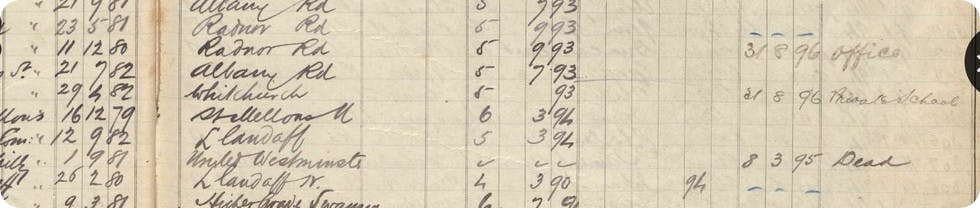 21 9 81 Albany Rd 5 7 93
" 23 5 81 Radnor Rd 5 9 93
" 11 12 80 Radnor Rd 5 9 93 31 8 96 Office
" 21 7 82 Albany Rd 5 7 93
" 29 4 82 Whitchurch 5 93 31 8 96 Private School
16 12 79 St Mellons 6 3 94
12 9 82 Llandaff 5 3 94
" 1 9 81 United Westminste 8 3 95 Dead
" 26 2 80 Llandaff N. 4 3 90 94
9 3 81 Higher Grade Swansea 6